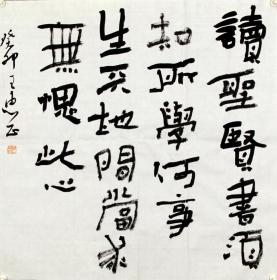 讀聖賢書須
知所學何事
生天地間當求
無愧此心
癸卯 王